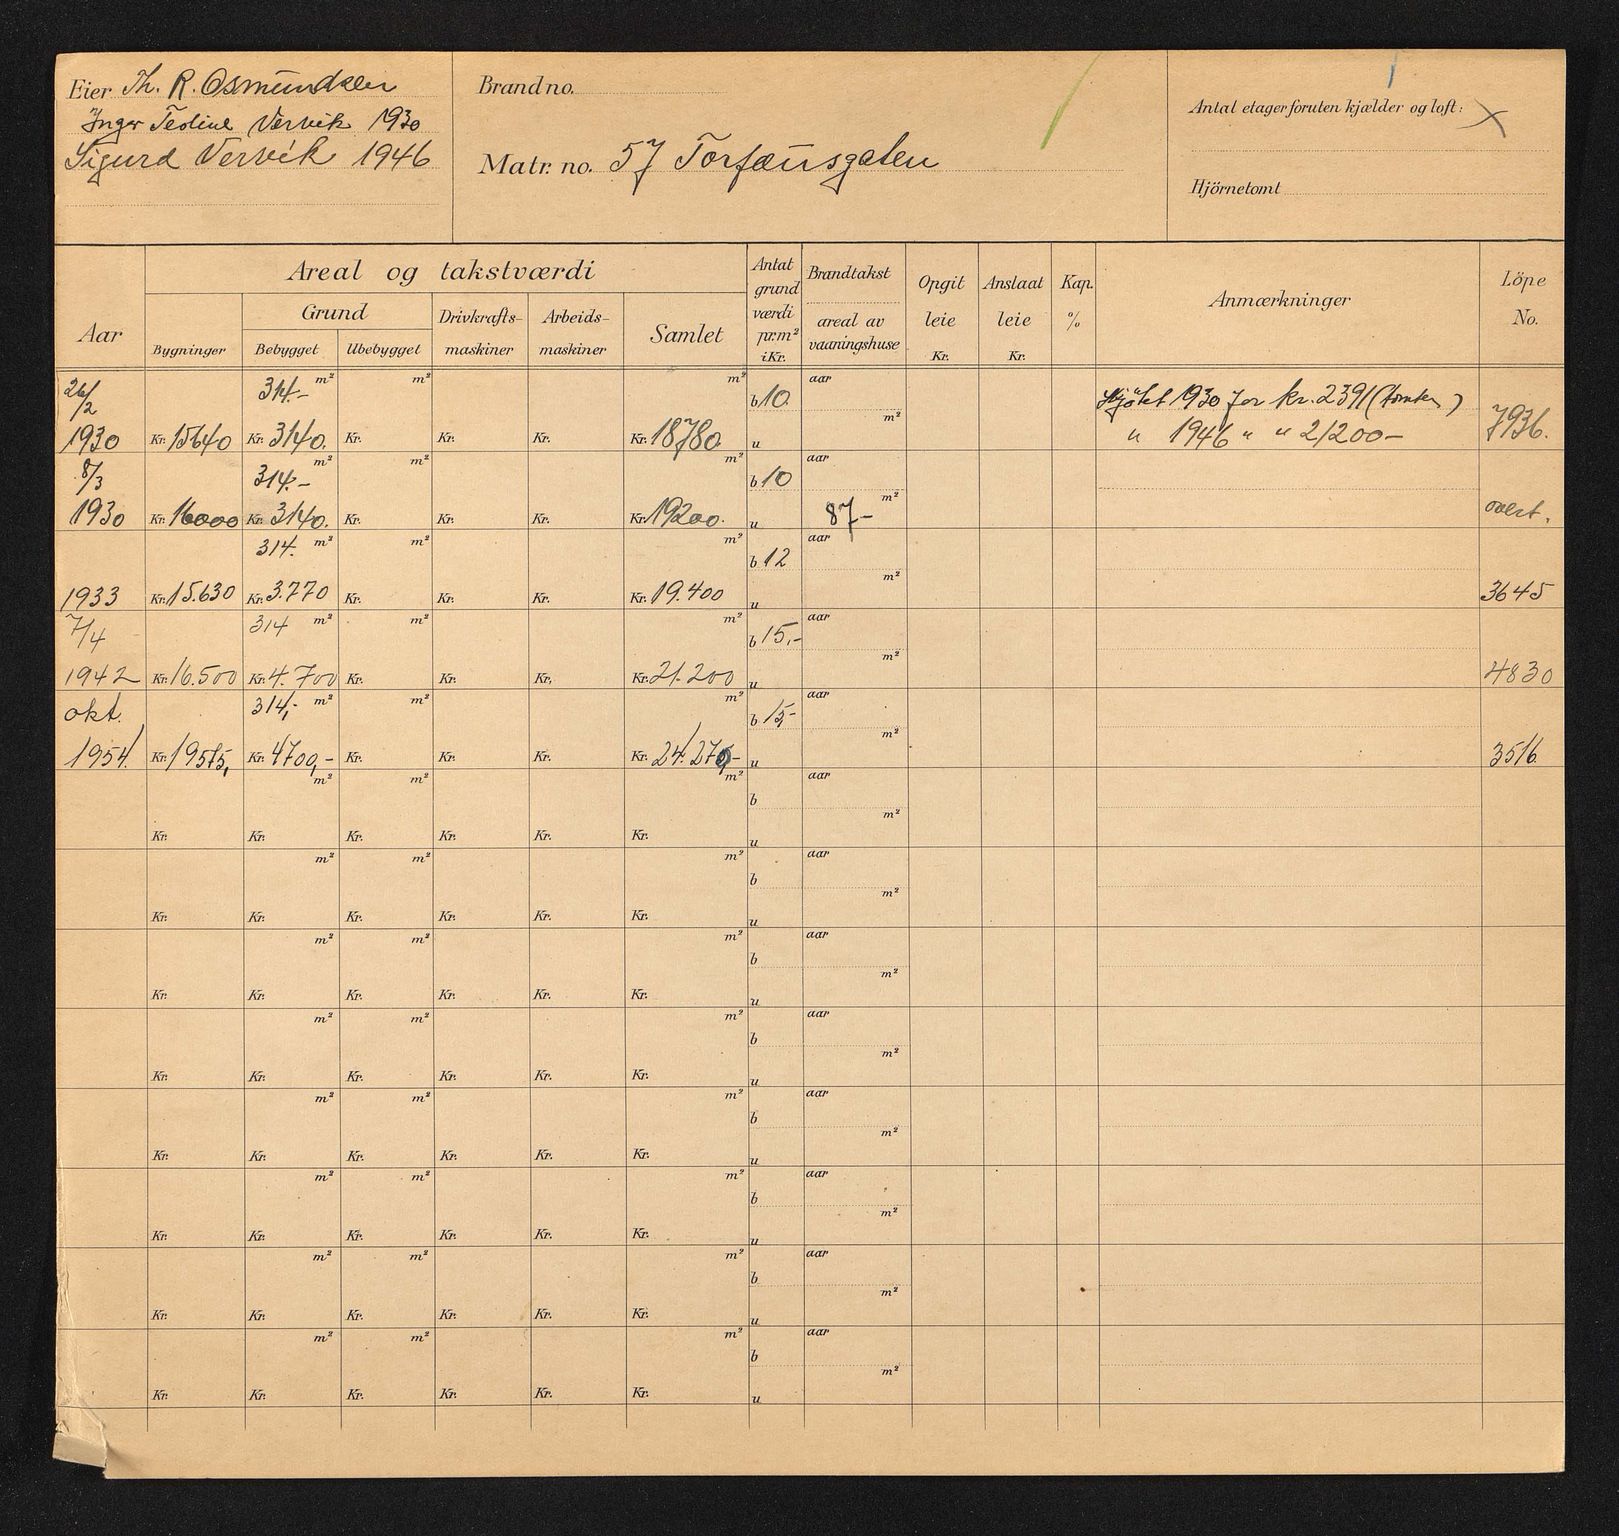 Eier Th. R. Osmundsen
Inger Teoline Vervik 1930
Sigurd Vervik 1946
Brand no.
Matr. no. 57 Torfæusgaten
Antal etager foruten kjælder og loft: X
Hjörnetomt
Aar
Areal og takstværdi
Grund
Bygninger Bebygget Ubebygget Drivkrafts-maskiner Arbeids-maskiner Samlet
Antat grund værdi pr. m² i Kr.
Brandtakst
areal av vaaningshuse
Opgit leie Kr.
Anslaat leie Kr.
Kap. %
Anmærkninger
Löpe No.
26/2 314.- m² m² m² b 10 aar Kjöbt 1930 for kr. 2391 (tomten)
1930 Kr. 15640 Kr. 3140. Kr. Kr. Kr. Kr. 18780. u m² " 1946 " " 21200- 7936.
8/3 314.- m² m² m² b 10 aar
1930 Kr. 16000 Kr. 3140. Kr. Kr. Kr. Kr. 19200. u 87- m² overt.
314. m² m² m² b 12 aar
1933 Kr. 15.630 Kr. 3.770 Kr. Kr. Kr. Kr. 19.400 u m² 3645
7/4 314 m² m² m² b 15,- aar
1942 Kr. 16.500 Kr. 4.700 Kr. Kr. Kr. Kr. 21.200 u m² 4830
okt. 314,- m² m² m² b 15,- aar
1954. Kr. 19575, Kr. 4700,- Kr. Kr. Kr. Kr. 24.270,- u m² 3516.
m² m² m² b aar
Kr. Kr. Kr. Kr. Kr. Kr. u m²
m² m² m² b aar
Kr. Kr. Kr. Kr. Kr. Kr. u m²
m² m² m² b aar
Kr. Kr. Kr. Kr. Kr. Kr. u m²
m² m² m² b aar
Kr. Kr. Kr. Kr. Kr. Kr. u m²
m² m² m² b aar
Kr. Kr. Kr. Kr. Kr. Kr. u m²
m² m² m² b aar
Kr. Kr. Kr. Kr. Kr. Kr. u m²
m² m² m² b aar
Kr. Kr. Kr. Kr. Kr. Kr. u m²
m² m² m² b aar
Kr. Kr. Kr. Kr. Kr. Kr. u m²